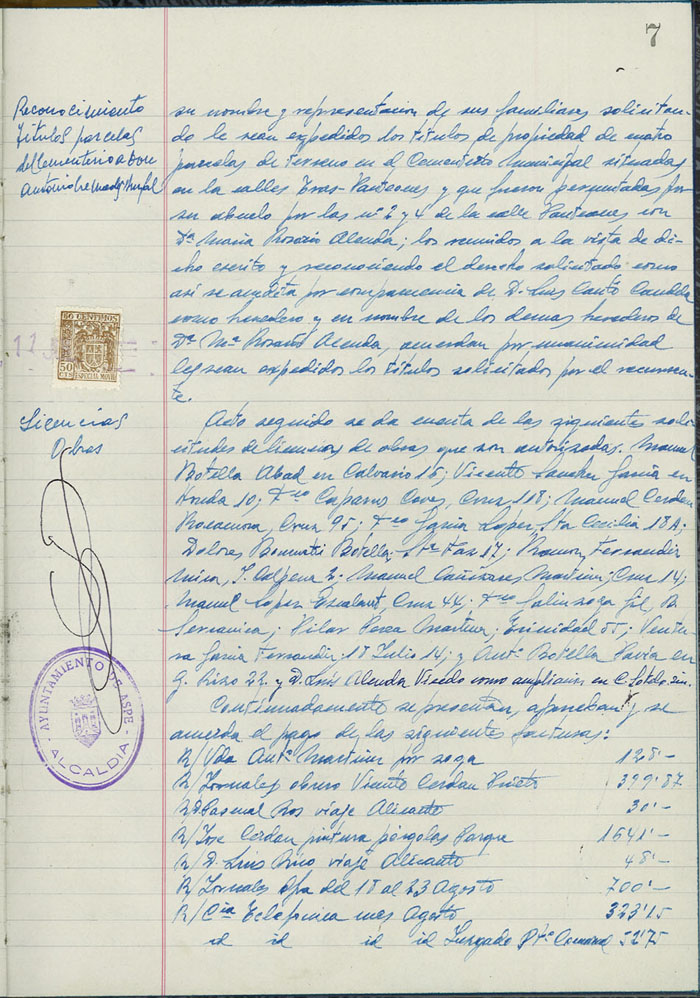 7
Reconocimiento
títulos parcelas
del Cementerio a Don
Antonio
su nombre y representación de sus familiares solicitan-
do le sean expedidos los títulos de propiedad de cuatro
parcelas de terreno en el Cementerio Municipal situadas
en la calles Panteones y que fueron permutadas por
su abuelo por las nº 2 y 4 de la calle Panteones con
Dª María Rosario Alenda; los reunidos a la vista de di-
cho escrito y reconociendo el derecho solicitado como
así se acredita por comparecencia de D. Luis Cantó Candela
como heredero y en nombre de los demas herederos de
Dª Mª Rosario Alenda, acuerdan por unanimidad
le sean expedidos los títulos solicitados por el recurren-
te.
60 CENTIMOS
50
CTS
ESPECIAL MOVIL
Licencias
Obras
Acto seguido se da cuenta de las siguientes soli-
citudes de licencias de obras que son autorizadas. Manuel
Botella Abad en Calvario 15; Vicente Sanchez García en
Honda 10; Fco Caparros Cruz 118; Manuel Cerdan
Rocamora, Cruz 95; Fco García Lopez, Sta Cecilia 18A;
Dolores Botella Stª Faz 17; Ramon Fernandez
Mira, J. Calpena 2; Manuel Cañizares Martinez Cruz 14;
Manuel Lopez Escalant, Cruz 44; Fco Galinsoga Gil, B.
Serranica; Pilar Perea Martinez; Trinidad 55; Ventu
ra García Fernandez 18 Julio 14; y Antº Botella Pavía en
G. Rizo 22 y D. Luis Alenda Vicedo como ampliación en C. Sotelo
AYUNTAMIENTO DE ASPE
ALCALDIA
Continuadamente se presentan, aprueban y se
acuerda el pago de las siguientes facturas:
R/ Vda Antº Martinez por soga 128'-
R/ Jornales obrero Vicente Cerdan Prieto 399'87
R/ D. Pascual Ros viaje Alicante 30'-
R/ Jose Cerdan pintura pérgolas Parque 1641'-
R/ D. Luis Mico viaje Alicante 48'-
R/ Jornales Ofa del 18 al 23 Agosto 700'-
R/ Cia Eclefinica mes Agosto 323'15
id id id id Juzgado Ptº Comarcal 52'75